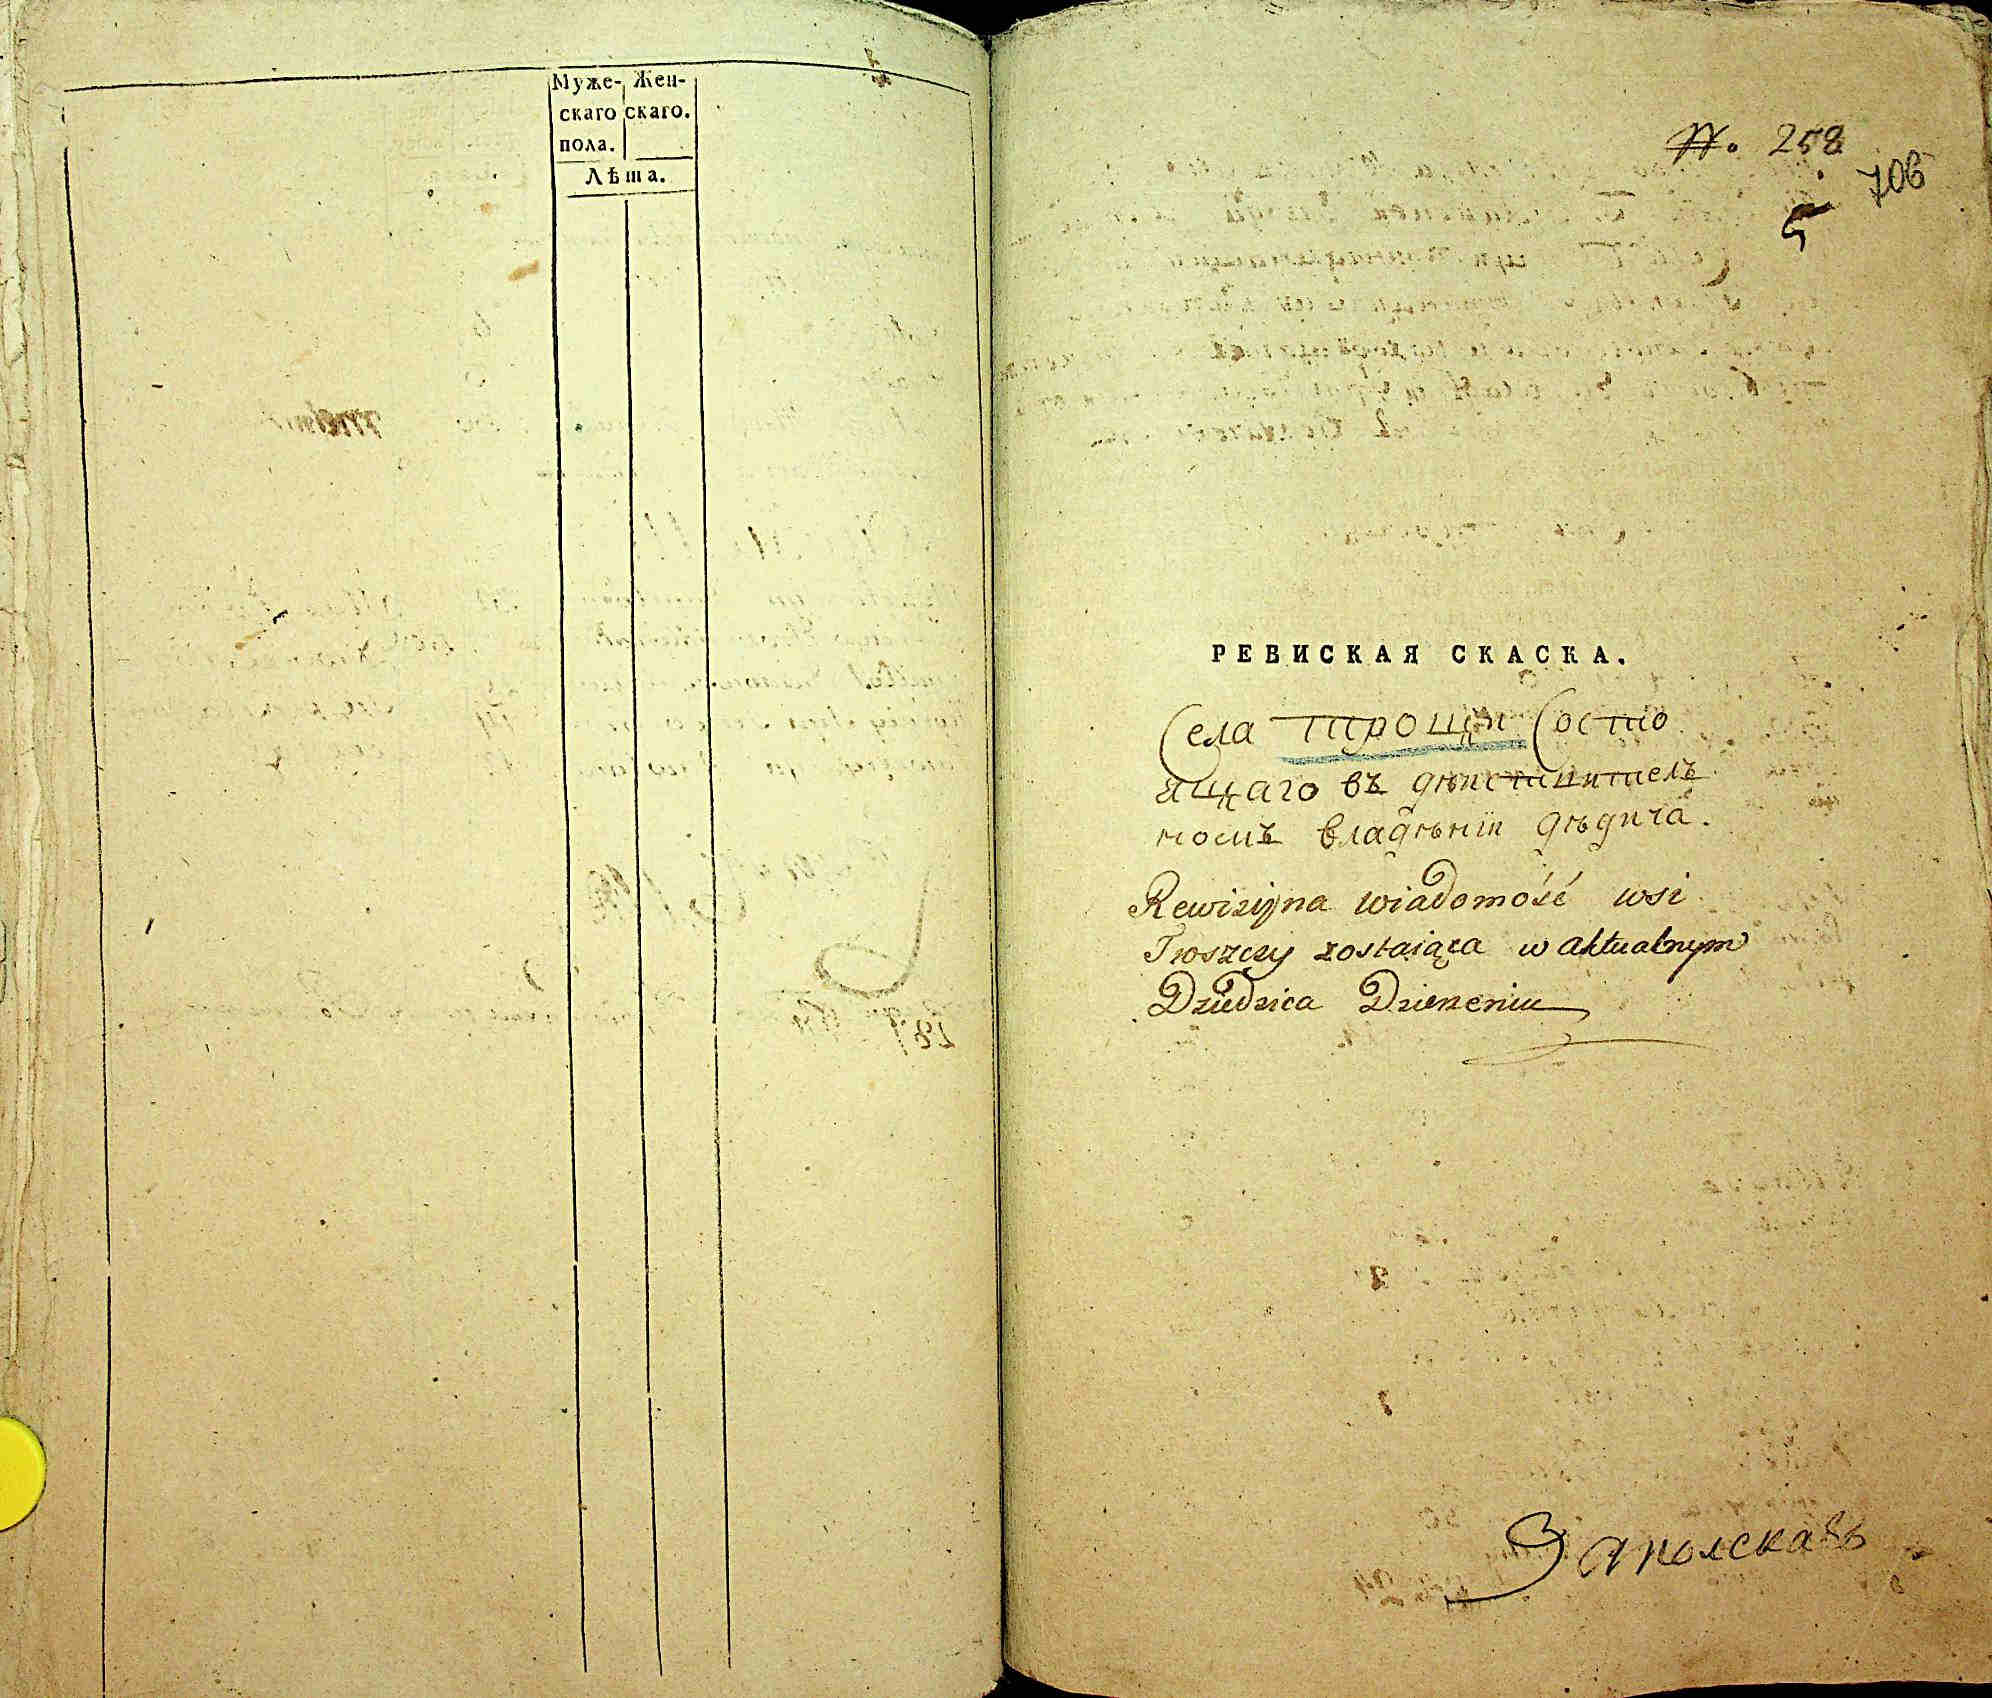 Муже- Жен-
скаго скаго.
пола.
Лѣта.
№. 258
706
5
РЕВИСКАЯ СКАСКА.
Села Трощи Состо
ящаго въ дѣиствител
номъ владѣніи дѣдича.
Rewizyjna wiadomość wsi
Troszczy zostaiąca w aktualnym
Dziedzica Dzierzeniu